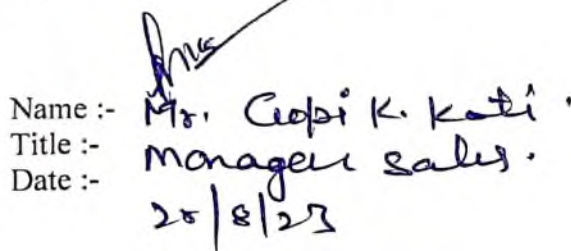 Name :- Mr. Gopi K. Kati.
Title :- Manager Sales.
Date :- 28/8/23